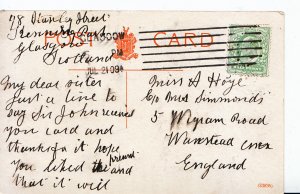 78 Stanley Street
Kenning Park
Glasgow
Scotland
POST CARD
GLASGOW
PM
JUL 21 09
My dear sister
Just a line to
say Sir John recind
you card and
thanks for it hope
you liked the present and
that it will
Miss A Hoyle
C/o Mrs Simmonds
5 Wigram Road
Wanstead Essex
England